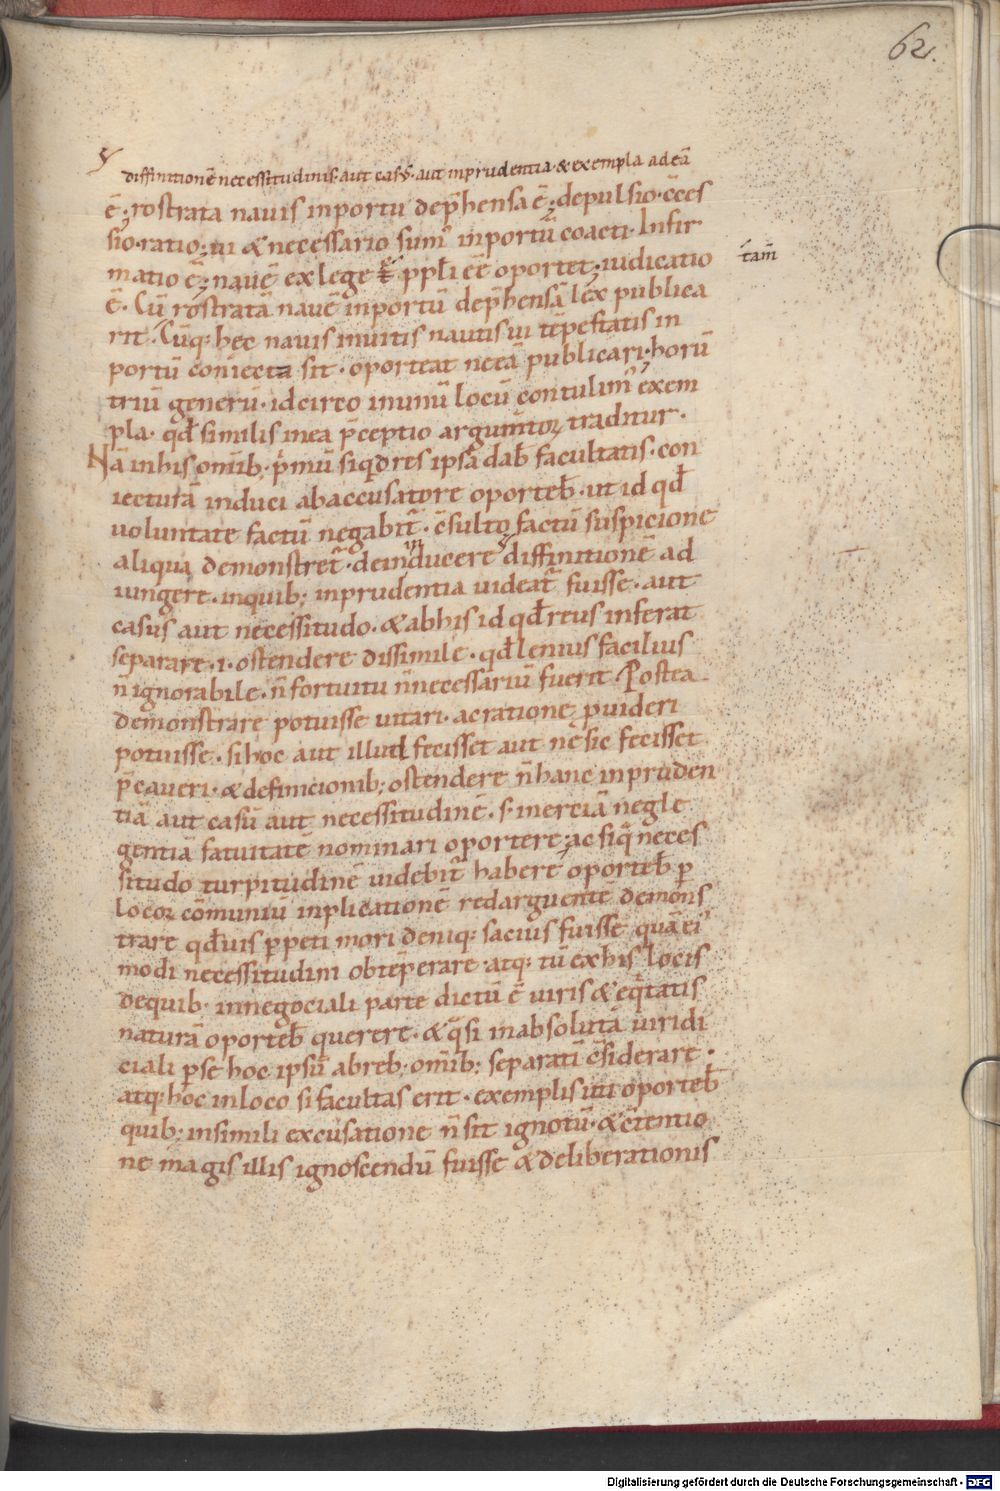 62.
diffinitionē necessitudinis. aut casꝰ. aut inprudentia. & exempla adeā
ē; rostrata nauis inportu dep̄hensa ē; depulsio. c̄ces
sio. ratio; ui & necessario sumꝰ inportū coacti. Infir
matio ē; nauē exlege ppl̄i eē oportet; iudicatio
tam̄
ē. Cū rostratā nauē inportū dep̄hensā lex publica
rit. Cūq; hec nauis inuitis nautis ui tēpestatis in
portū coniecta sit. oporteat neeā publicari. horū
triū generū. idcirco inunū locū contulimꝰ exem
pla. qđ similis inea p̄ceptio argumtoꝝ traditur.
Nā inhis omīb. p̍mū siqd res ipsa dab̄ facultatis. con
iecturā induci abaccusatore oporteb̄. ut id qđ
uoluntate factū negabit̄. c̄sulto factū suspicione
aliqua demonstret̄. dein inducere diffinitionē ad
iungere. inquib; inprudentia uideat̄ fuisse. aut
casus aut necessitudo. & abhis id qđ reus inferat
separare. i. ostendere dissimile. qđ lenius facilius
n̄ ignorabile. n̄ fortuitu n̄ necessariū fuerit. Postea
demonstrare potuisse uitari. ac ratione ꝓuideri
potuisse. si hoc aut illud fecisset aut ne sic fecisset
p̄caueri. & definicionib; ostendere n̄ hanc inpruden
tiā aut casū aut necessitudinē. s. inerciā negle
gentiā fatuitatē nominari oportere; ac siq̄ neces
situdo turpitudinē uidebit̄ habere oporteb̄ ꝑ
locoꝝ cōmuniū inplicationē redarguentē demons
trare qđuis ꝑpeti mori deniq; sacius fuisse quā eiꝰ
modi necessitudini obtēperare. atq; tū exhis locis
dequib. innegociali parte dictū ē uiris & eq̄tatis
naturā oporteb̄ querere. & q̄si inabsoluta uiridi
ciali ꝑse hoc ipsū abreb; omīb; separatī c̄siderare.
atq; hoc inloco si facultas erit. exemplis uti oporteb̄
quib; insimili excusatione n̄ sit ignotū. & c̄tentio
ne magis illis ignoscendū fuisse & deliberationis
Digitalisierung gefördert durch die Deutsche Forschungsgemeinschaft - DFG